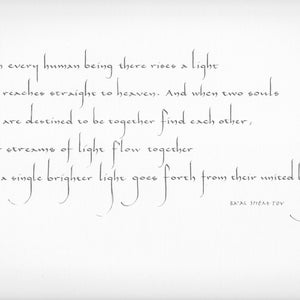 every human being there rises a light
reaches straight to heaven. And when two souls
are destined to be together find each other,
streams of light flow together
a single brighter light goes forth from their united
BA'AL SHEM TOV